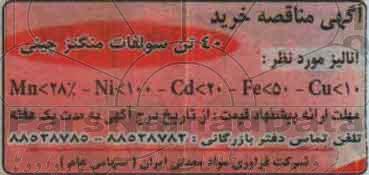 آگهی مناقصه خرید
۴۰ تن سولفات منگنز چینی
آنالیز مورد نظر :
Mn<۲۸٪ - Ni<۱۰۰ - Cd<۲۰ - Fe<۵۰ - Cu<۱۰
مهلت ارائه پیشنهاد قیمت : از تاریخ درج آگهی به مدت یک هفته
تلفن تماس دفتر بازرگانی : ۸۸۵۳۸۷۸۳ - ۸۸۵۳۸۷۸۵
شرکت فرآوری مواد معدنی ایران ( سهامی عام )